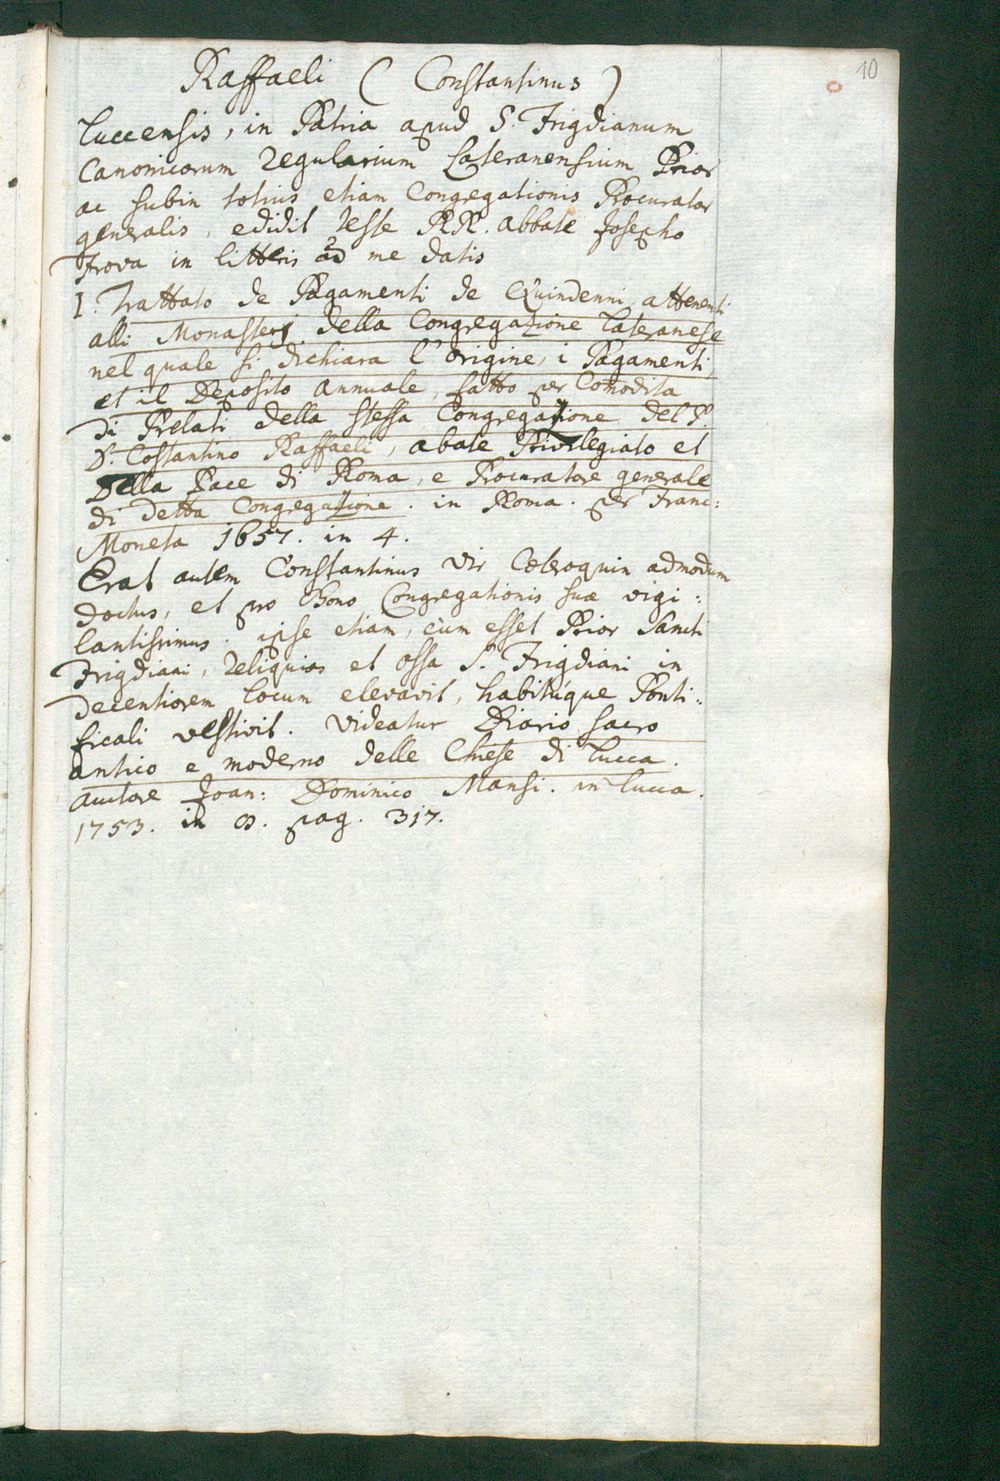 10
Raffaeli (Constantinus)
Luccensis, in Patria apud S. Frigdianum
Canonicorum Regularium Lateranensium Prior
ac subin totius etiam Congregationis Procurator
generalis, edidit teste RR. abbate Josepho
Trova in litteris ad me datis
I. Trattato de Pagamenti de Quindenni attenenti
alli Monasterj della Congregazione Lateranese
nel quale si dichiara l'origine, i Pagamenti,
et il Deposito annuale, fatto per Comodita
di Prelati della stessa Congregazione del P.
D. Costantino Raffaeli, abate Privilegiato et
Della Pace di Roma, e Procuratore generale
di detta Congregazione. in Roma. per Franc:
Moneta 1657. in 4.
Erat autem Constantinus vir Cœteroquin admodum
doctus, et pro Bono Congregationis suæ vigi:
lantissimus. ipse etiam, cùm esset Prior Sancti
Frigdiani, reliquias et ossa S. Frigdiani in
decentiorem locum elevavit, habitúque Ponti:
ficali vestivit. videatur Diario sacro
antico e moderno delle Chiese di Lucca.
auctore Joan: Dominico Mansi. in Lucca.
1753. in 8. pag. 317.